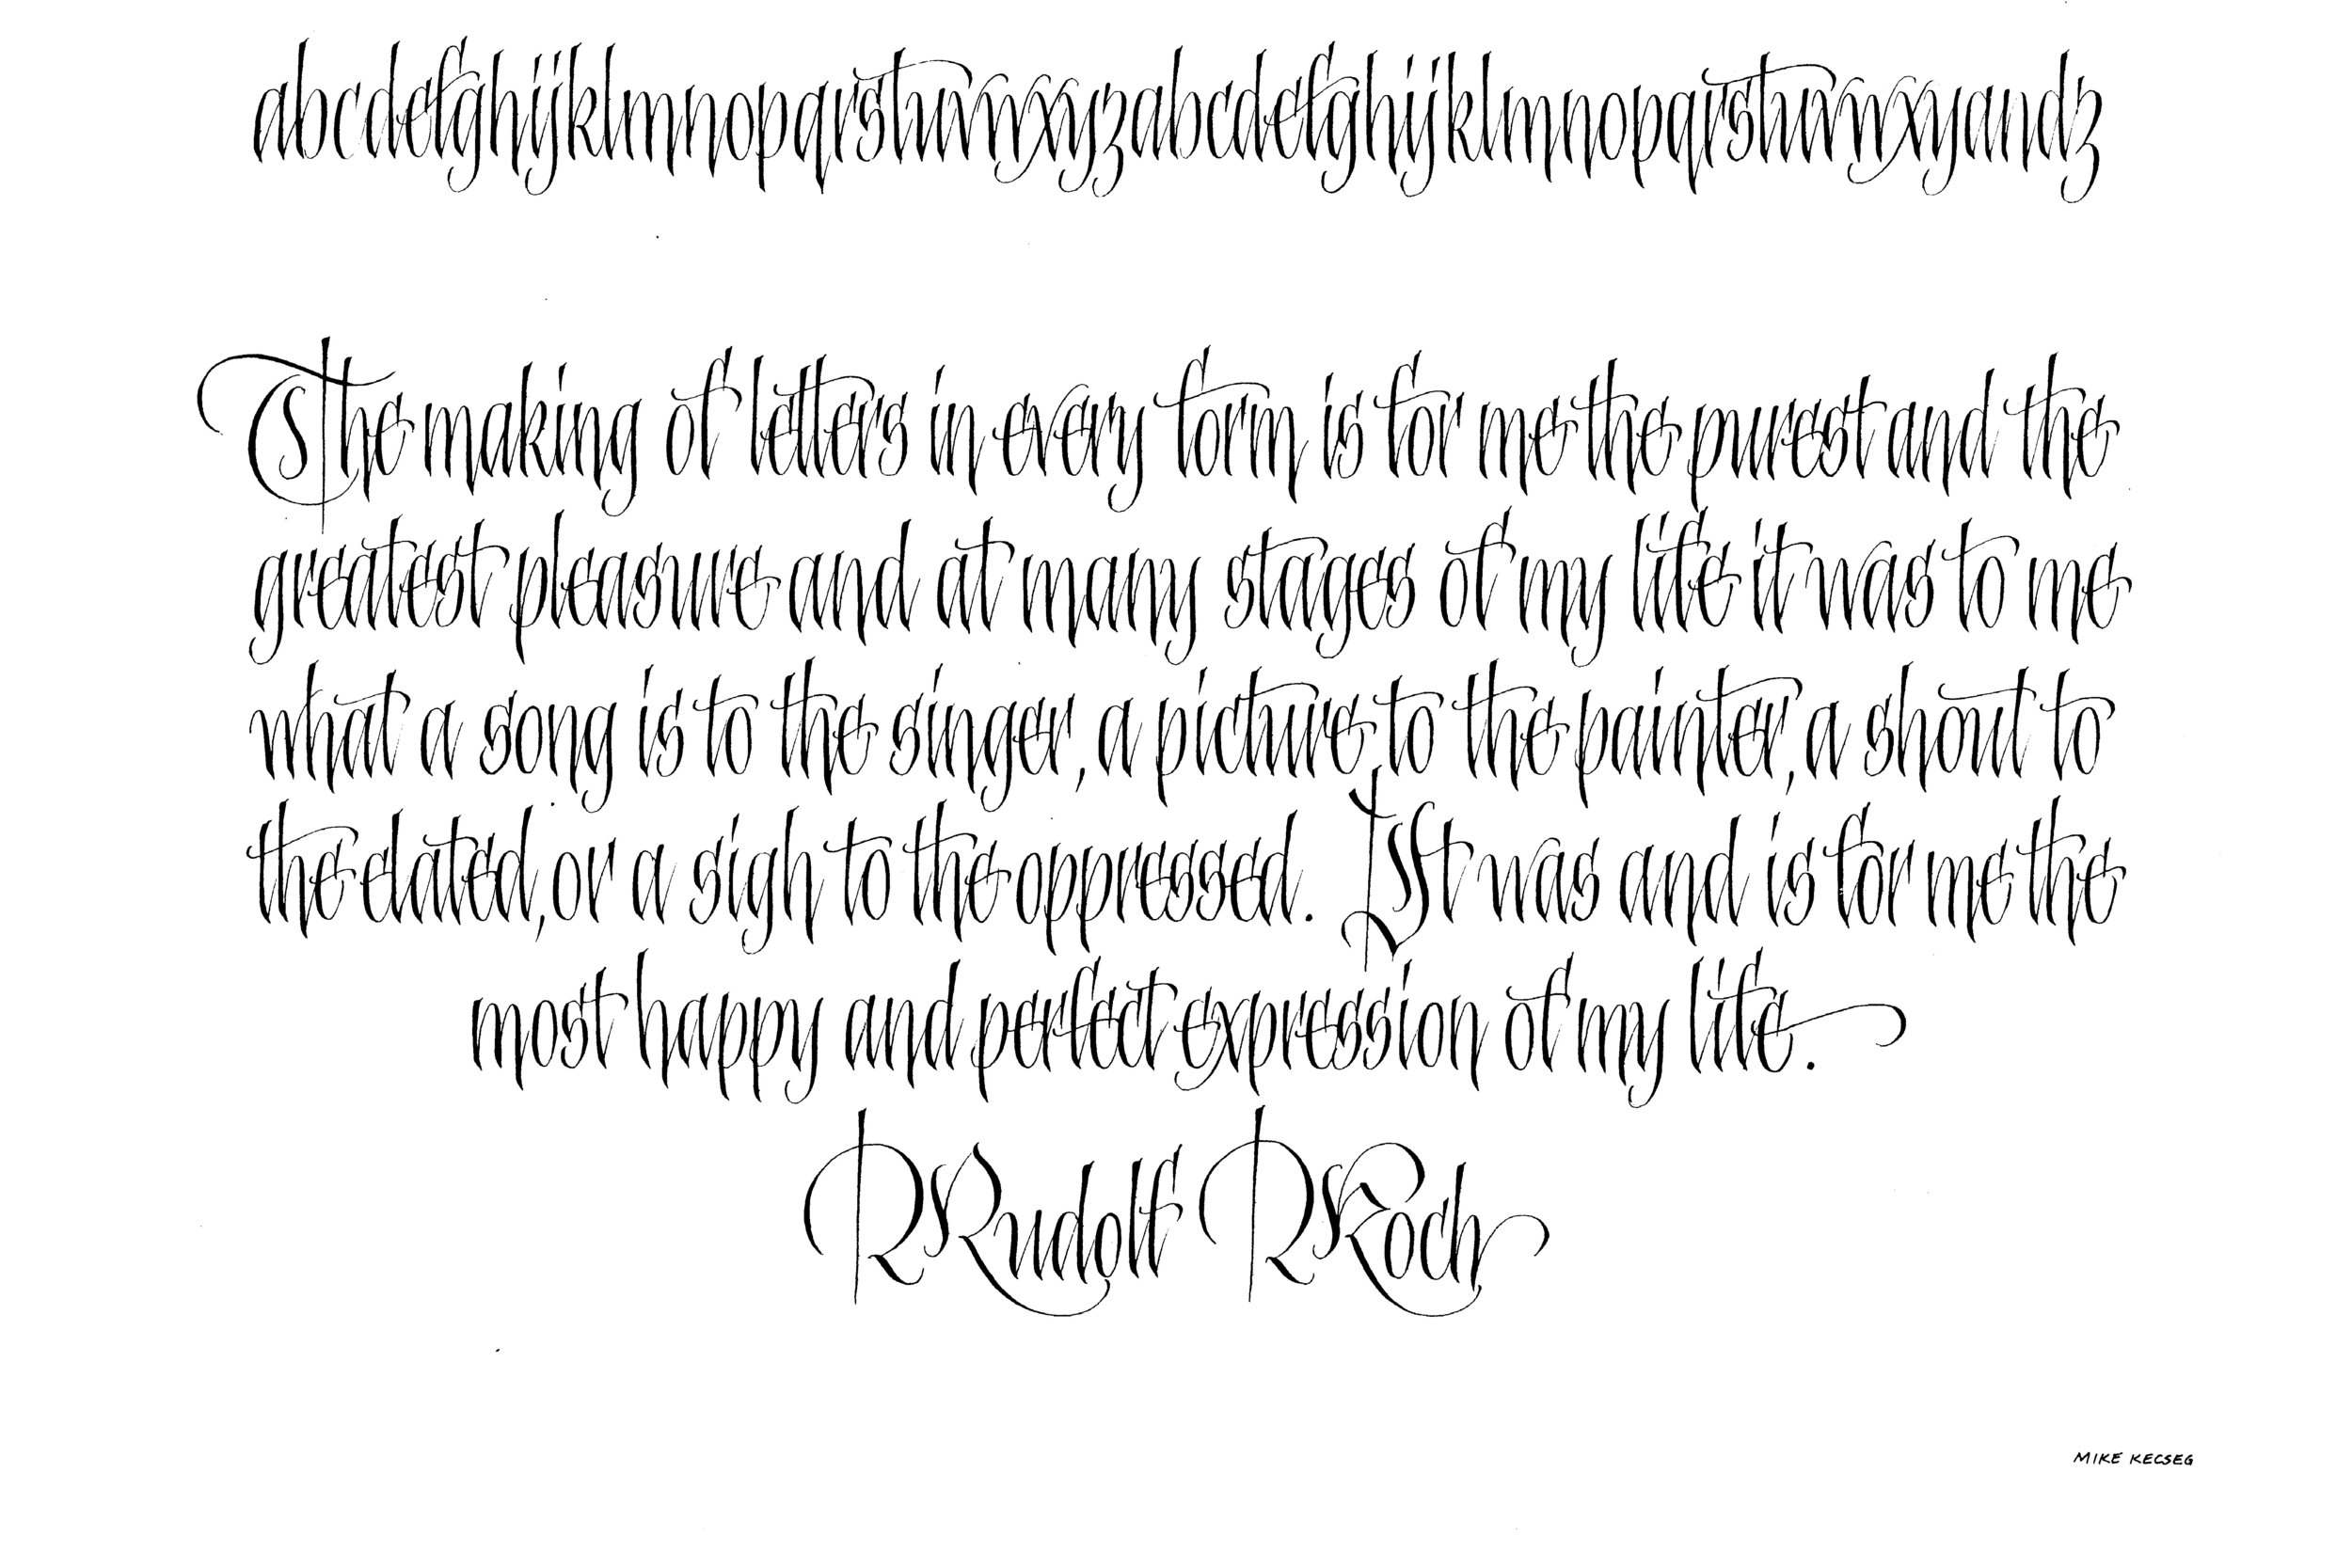 abcdefghijklmnopqrstuvwxyzabcdefghijklmnopqrstuvwxyandz
The making of letters in every form is for me the purest and the
greatest pleasure and at many stages of my life it was to me
what a song is to the singer, a picture to the painter, a shout to
the elated, or a sigh to the oppressed. It was and is for me the
most happy and perfect expression of my life.
Rudolf Koch
MIKE KECSEG